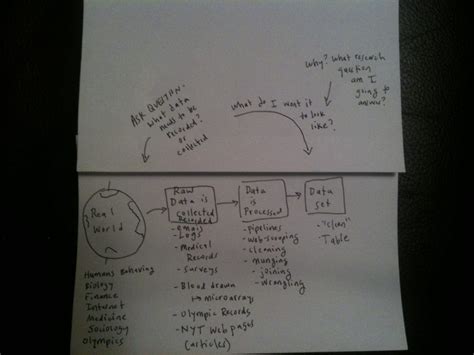 ASK QUESTION:
what data
needs to be
recorded?
or
collected
what do I want it
to look
like?
why? what research
question
am I
going to
answer?
Real
World
Humans Behaving
Biology
Finance
Internet
Medicine
Sociology
Olympics
Raw
Data is
collected
Recorded
- emails
- Logs
- Medical
Records
- Surveys
- Blood drawn
→ microarrays
- Olympic Records
- NYT Web pages
(articles)
Data
is
Processed
- Pipelines
- Web-scraping
- cleaning
- munging
- joining
- wrangling
Data
set
- "clean"
Table